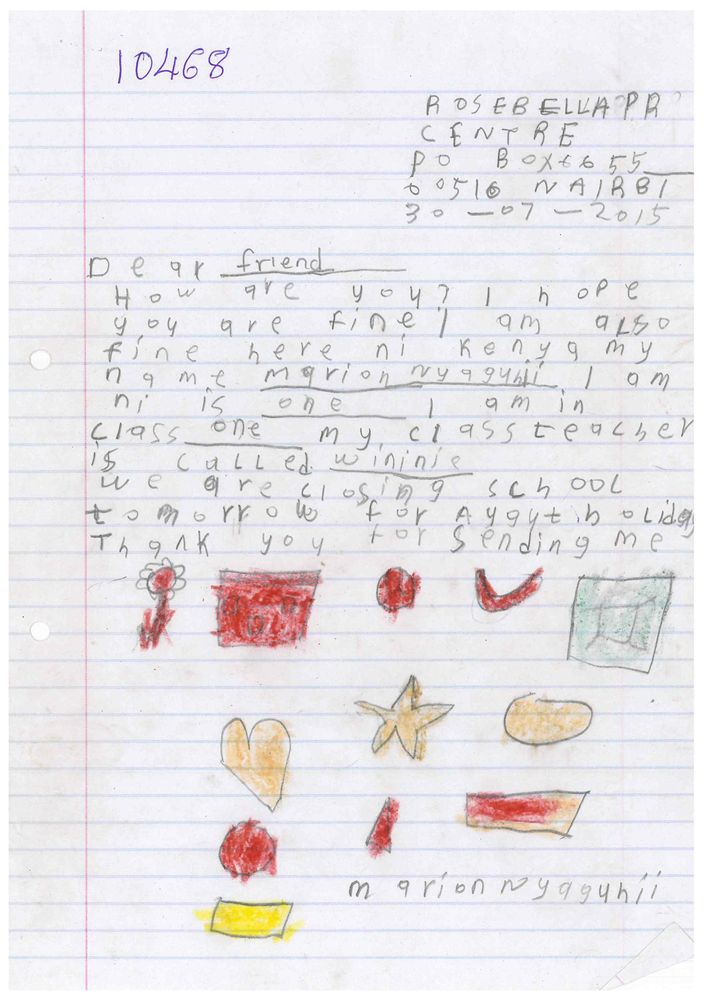 10468
ROSEBELLA PR
CENTRE
PO BOX 6655
00516 NAIRBI
30-07-2015
Dear friend
How are you? I hope
you are fine I am also
fine here ni kenya my
name marion nyaguhii I am
ni is one I am in
class one my class teacher
is called wininie
we are closing school
tomorrow for Aygyt holiday
Thank you for sending me
marion nyaguhii